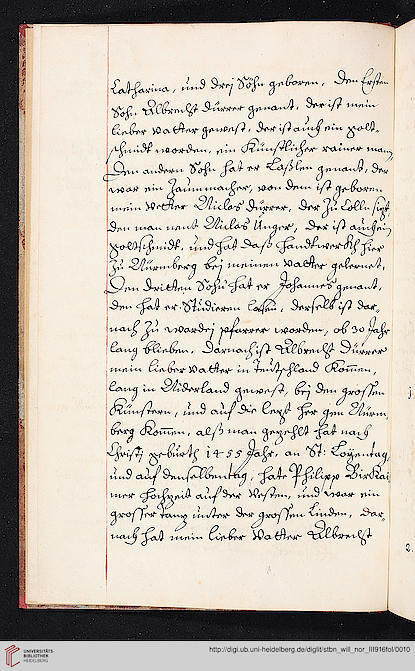 Catharina, und drej Söhn geboren. Den Ersten
Sohn Albrecht Dürrer genant, der ist mein
lieber vatter gewest, der ist auch ein golt-
schmidt worden, ein Künstlicher rainer man,
Den andern Sohn hat er Laßlen genant, der
war ein Zaummacher, von dem ist geboren
mein Vetter Niclas Dürrer, der zu Cölln sizt
den man nent Niclas Unger, der ist auch ein
goltschmidt, und hat daß handtwerckh hier
zu Nürnberg bej meinem vatter gelernet,
Den dritten Sohn hat er Johannes genant,
den hat er Studieren laßen, derselb ist dar-
nach zu wardej pfarrer worden, ob 30 Jahr
lang blieben. Darnach ist Albrecht Dürrer
mein lieber vatter in Teutschland Komen,
lang in Niderland gewest, bej den grossen
Künstern, und auf die lezt her gen Nürm
berg Komen, alß man gezehlt hat nach
Christj geburth 1455 Jahr, an St: Loyentag
und auf denselben tag, hate Philipp Birkai
mer hochzeit auf der Vesten, und war ein
grosser tanz unter der grossen Linden, dar-
nach hat mein lieber Vatter Albrecht
2.
UNIVERSITÄTS-
BIBLIOTHEK
HEIDELBERG
http://digi.ub.uni-heidelberg.de/diglit/stbn_will_nor_III916fol/0010